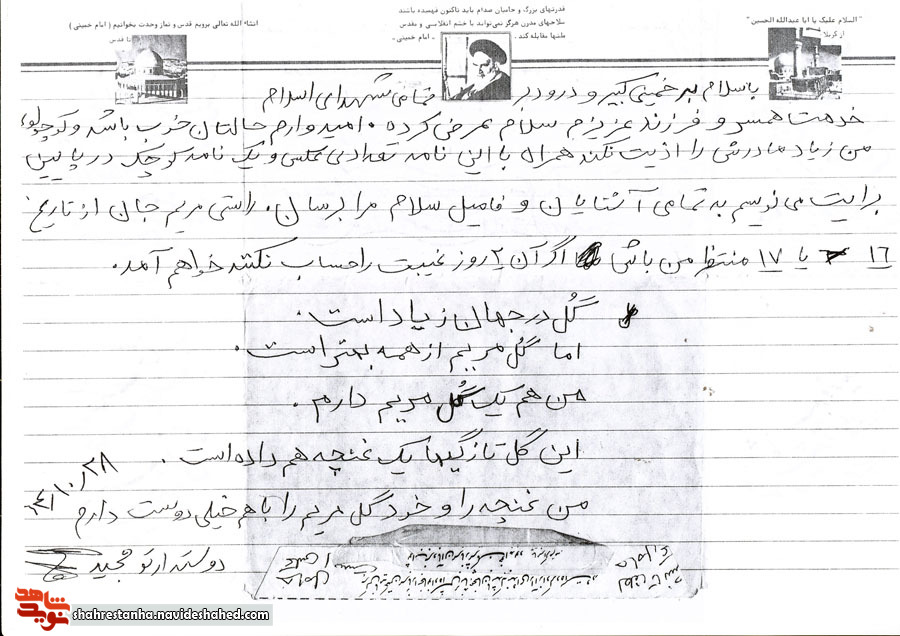 " السلام علیک یا ابا عبدالله الحسین "
از کربلا
قدرتهای بزرگ و حامیان صدام باید تاکنون فهمیده باشند
سلاحهای مدرن هرگز نمی‌تواند با خشم انقلابی و مقدس
ملتها مقابله کند . ـ امام خمینی ـ
انشاء الله تعالی برویم قدس و نماز وحدت بخوانیم ( امام خمینی )
تا قدس
باسلام بر خمینی کبیر و درود بر تمامی شهدای اسلام
خدمت همسر و فرزند عزیزم سلام عرض کرده . امیدوارم حالتان خوب باشد و کوچولوی
من زیاد مادرش را اذیت نکند همراه با این نامه تعدادی عکس و یک نامه کوچک در پایین
برایت می نویسم به تمامی آشنایان و فامیل سلام مرا برسان . راستی مریم جان از تاریخ
۱۶ یا ۱۷ منتظر من باش اگر آن ۲ روز غیبت را حساب نکنند خواهم آمد .
گُل در جهان زیاد است .
اما گُل مریم از همه بهتر است .
من هم یک گُل مریم دارم .
این گل تازگیها یک غنچه هم داده است .
من غنچه را و خود گل مریم را باهم خیلی دوست دارم
۶۴/۱۰/۲۸
دوستدار تو مجید
نوید شاهد
shahrestanha.navideshahed.com